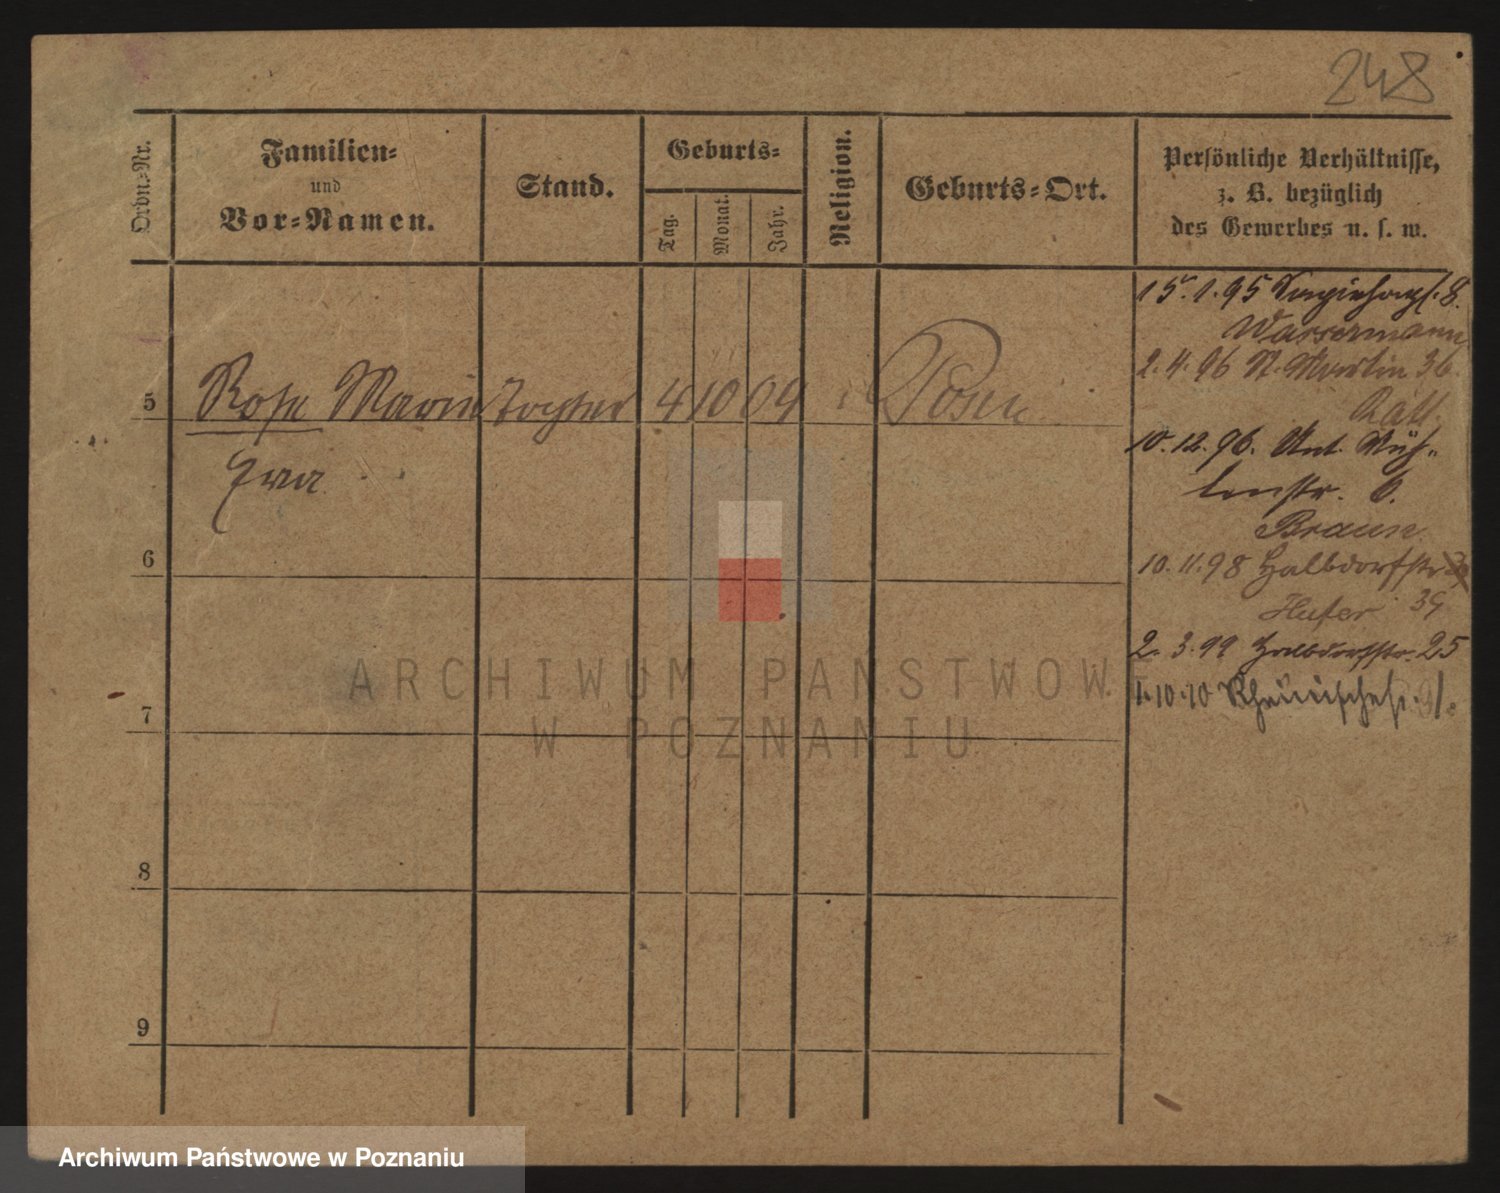 248
Ordn.-Nr.
Familien-
und
Vor-Namen.
Stand.
Geburts-
Tag.
Monat.
Jahr.
Religion.
Geburts-Ort.
Persönliche Verhältnisse,
z. B. bezüglich
des Gewerbes u. s. w.
15.1.95 8.
Wassermann
2.4.96 St. Martin 36.
10.12.96. Unt. Müh-
lenstr. 6.
Braun
10.11.98 Halbdorfstr
Hufer 39
2.3.99 Halbdorfstr. 25
1.10.10
5 Rosa Marie Tochter 4 10 09 Posen
6
7
8
9
ARCHIWUM PAŃSTWOW
W POZNANIU
Archiwum Państwowe w Poznaniu